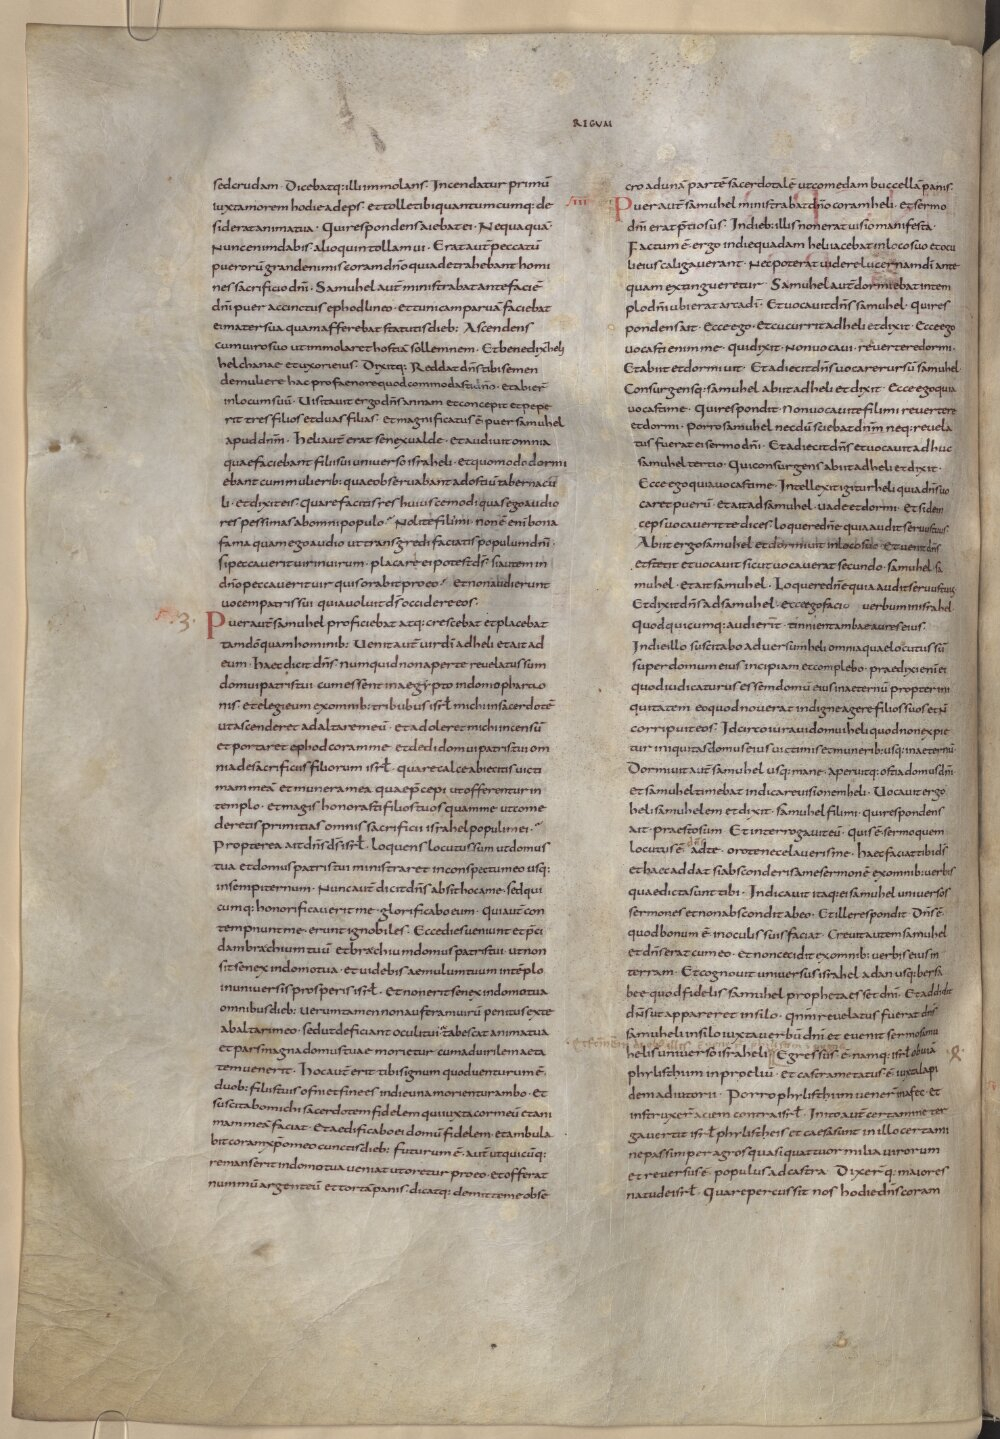 REGUM
sed crudam · Dicebatq: illi immolans · Incendatur primū
iuxta morem hodie adeps · et tolle tibi quantumcumq: de
siderat anima tua · Qui respondens aiebat ei · Nequaquā
Nunc enim dabis · alioquin tollam ui · Erat aut̄ peccatū
puerorū grande nimis coram dn̄o quia detrahebant homi
nes sacrificio dn̄i · Samuhel aut̄ ministrabat ante faciē
dn̄i puer accinctus ephod lineo · et tunicam paruā faciebat
ei mater sua quam afferebat statutis dieb: Ascendens
cum uiro suo ut immolaret hostiā sollemnem · Et benedix heli
helchanae et uxori eius · Dixitq: Reddat dn̄s tibi semen
de muliere hac pro faenore quod commodasti dn̄o · et abier̄
in locum suū · Uisitauit ergo dn̄s annam et concepit et pepe
rit tres filios et duas filias · et magnificatus ē puer samuhel
apud dn̄m · Heli aut̄ erat senex ualde · et audiuit omnia
quae faciebant filii sui uniuerso israheli · et quomodo dormi
ebant cum mulierib: quae obseruabant ad ostiū tabernacu
li · et dixit eis · Quare facitis res huiuscemodi quas ego audio
res pessimas ab omni populo · Nolite filii mi · non ē enī bona
fama quam ego audio ut transgredi faciatis populum dn̄i ·
si peccauerit uir in uirum · placare ei potest d̄s · si autem in
dn̄o peccauerit uir quis orabit pro eo · et non audierunt
uocem patris sui quia uoluit d̄s occidere eos ·
3 · Puer aut̄ samuhel proficiebat atq: crescebat et placebat
tam dō quam hominib: Uenit aut̄ uir dī ad heli et ait ad
eum · Haec dicit dn̄s · numquid non aperte reuelatus sum
domui patris tui · cum essent in aegypto in domo pharao
nis · et elegi eum ex omnib: tribubus isrl̄ michi in sacerdotē
ut ascenderet ad altare meū · et adoleret michi incensū
et portaret ephod coram me · et dedi domui patris tui om
nia de sacrificiis filiorum isrl̄ · quare calce abiecitis uicti
mam meā et munera mea quae p̄cepi ut offerentur in
templo · et magis honorasti filios tuos quam me ut come
deretis primitias omnis sacrificii israhel populi mei ·
Propterea ait dn̄s d̄s isrl̄ · loquens locutus sum ut domus
tua et domus patris tui ministraret in conspectu meo usq:
in sempiternum · Nunc aut̄ dicit dn̄s absit hoc a me · sed qui
cumq: honorificauerit me · glorificabo eum · Qui aut̄ con
tempnunt me · erunt ignobiles · Ecce dies ueniunt et p̄ci
dam brachium tuū et brachium domus patris tui · ut non
sit senex in domo tua · et uidebis aemulum tuum in tēplo
in uniuersis prosperis isrl̄ · Et non erit senex in domo tua
omnibus dieb: Uerumtamen non auferam uirū penitus ex te
ab altari meo · sed ut deficiant oculi tui · et tabescat anima tua
et pars magna domus tuae morietur cum ad uirilem aeta
tem uenerit · Hoc aut̄ erit tibi signum quod uenturum ē
duob: filiis tuis ofni et finees in die una morientur ambo · et
suscitabo michi sacerdotem fidelem qui iuxta cor meū et ani
mam meā faciat · Et aedificabo ei domū fidelem · et ambula
bit coram xp̄o meo cunctis dieb: futurum ē · aut̄ ut quicūq:
remanserit in domo tua ueniat ut oretur pro eo · et offerat
nummū argenteū et tortā panis · dicatq: demitte me obse
cro ad unā partē sacerdotalē ut comedam buccellā panis ·
IIII Puer aut̄ samuhel ministrabat dn̄o coram heli · et sermo
dn̄i erat p̄tiosus · In dieb: illis non erat uisio manifesta ·
Factum ē · ergo in die quadam heli iacebat in loco suo et ocu
li eius caligauerant · Nec poterat uidere lucernam dī ante
quam extingueretur · Samuhel aut̄ dormiebat in tem
plo dn̄i ubi erat arca dī · Et uocauit dn̄s samuhel · Qui res
pondens ait · Ecce ego · Et cucurrit ad heli et dixit · Ecce ego
uocasti enim me · qui dixit · non uocaui · reuertere dormi ·
Et abiit et dormiuit · Et adiecit dn̄s uocare rursū samuhel
Consurgensq: samuhel abiit ad heli et dixit · Ecce ego quia
uocasti me · Qui respondit · Non uocaui te fili mi reuertere
et dormi · Porro samuhel necdū sciebat dn̄m neq: reuela
tus fuerat ei sermo dn̄i · Et adiecit dn̄s et uocauit adhuc
samuhel tertio · Qui consurgens abiit ad heli et dixit ·
Ecce ego quia uocasti me · Intellexit igitur heli quia dn̄s uo
caret puerū · et ait ad samuhel · uade et dormi · Et si dein
ceps uocauerit te dices · loquere dn̄e quia audit seruus tuus ·
Abiit ergo samuhel et dormiuit in loco suo · Et uenit dn̄s
et stetit et uocauit sicut uocauerat secundo · samuhel sa
muhel · Et ait samuhel · Loquere dn̄e quia audit seruus tuus
Et dixit dn̄s ad samuhel · ecce ego facio uerbum in israhel
Quod quicumq: audierit · tinnient ambae aures eius ·
In die illo suscitabo aduersum heli omnia quae locutus sū
super domum eius incipiam et complebo · praedixi enī ei
quod iudicaturus essem domū eius in aeternū propter ini
quitatem eo quod nouerat indigne agere filios suos et n̄
corripuit eos · Idcirco iuraui domui heli quod non expie
tur iniquitas domus eius uictimis et munerib: usq: in aeternū
Dormiuit aut̄ samuhel usq: mane · aperuitq: ostia domus dn̄i
et samuhel timebat indicare uisionem heli · Uocauit ergo
heli samuhelem et dixit · samuhel fili mi · qui respondens
ait · praesto sum · Et interrogauit eū · Quis ē sermo quem
locutus ē dn̄s ad te · oro te ne celaueris me · haec faciat tibi d̄s
et haec addat si absconderis a me sermonē ex omnib: uerbis
quae dicta sunt tibi · Indicauit itaq: ei samuhel uniuersos
sermones et non abscondit ab eo · Et ille respondit · Dn̄s ē
quod bonum ē · in oculis suis faciat · Creuit autem samuhel
et dn̄s erat cum eo · et non cecidit ex omnib: uerbis eius in
terram · Et cognouit uniuersus israhel a dan usq: bersa
bee quod fidelis samuhel propheta esset dn̄i · Et addidit
dn̄s ut appareret in silo · Qnm̄ reuelatus fuerat dn̄s
samuheli in silo iuxta uerbū dn̄i et euenit sermo samu
helis uniuerso israheli Egressus ē namq: isrl̄ obuiā
phylisthum in proeliū · et castrametatus ē iuxta lapi
dem adiutorii · Porro phylisthum uener̄ in afec · et
instruxer̄ aciem contra isrl̄ · Inito aut̄ certamine ter
ga uertit isrl̄ phylistheis et caesa sunt in illo certami
ne passim per agros quasi quattuor milia uirorum
et reuersus ē populus ad castra Dixer̄q: maiores
natu de isrl̄ · Quare percussit nos hodie dn̄s coram